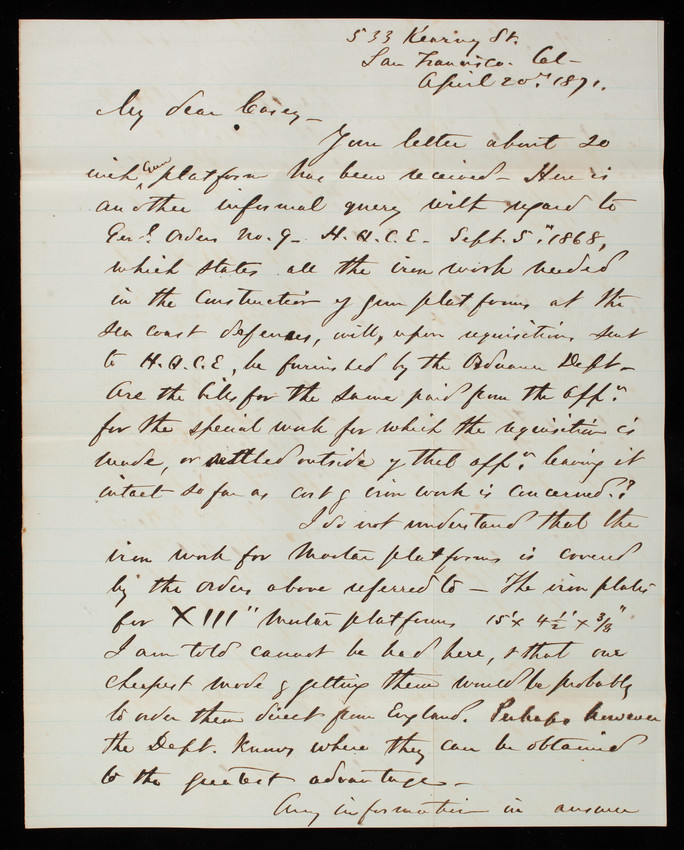 533 Kearny St.
San Francisco. Cal-
April 20th, 1871.
My dear Casey-
Your letter about 20
inch gun platform has been received- Here is
another informal query with regard to
Genl. Orders No. 9- H.Q.C.E- Sept. 5", 1868,
which states all the iron work needed
in the construction of gun platforms at the
sea coast defenses, will, upon requisitions sent
to H.Q.C.E, be furnished by the Ordnance Dept-
Are the bills for the same paid from the appn.
for the special work for which the requisition is
made, or settled outside of that appn. leaving it
intact so far as cost of iron work is concerned.?
I do not understand that the
iron work for Mortar platforms is covered
by the orders above referred to- The iron plates
for XIII" Mortar platforms 15' x 4 1/2' x 3/8"
I am told cannot be had here, & that our
cheapest mode of getting them would be probably
to order them direct from England. Perhaps however
the Dept. knows where they can be obtained
to the greatest advantage-
Any information in answer